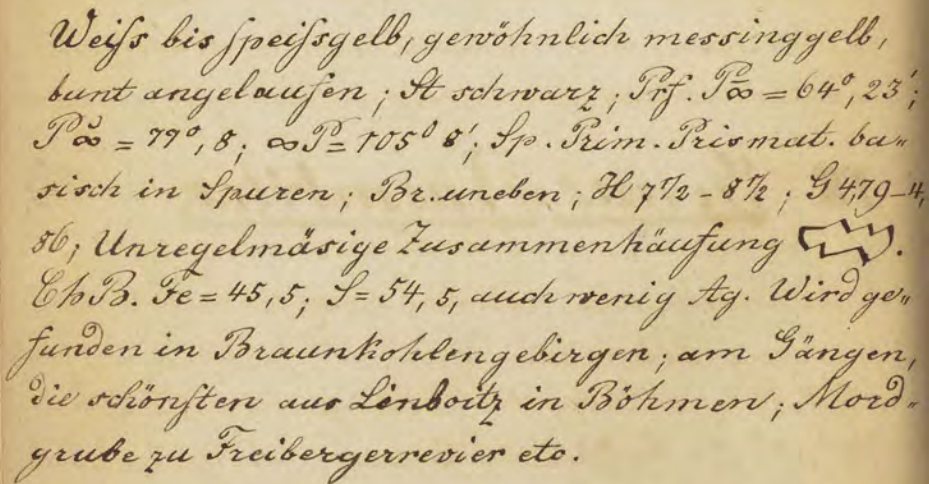 Weiſs bis ſpeiſsgelb, gewöhnlich messinggelb,
bunt angelaufen; St schwarz; Prf. P̄∞ = 64°, 23';
P̆∞ = 77°, 8; ∞P = 105° 8'; Sp. Prim. Prismat. ba„
sisch in Spuren; Br. uneben; H 7½ - 8½; G 4,79-4,
86; Unregelmäsige Zusammenhäufung.
ChB. Fe = 45,5; S = 54,5, auch wenig Ag. Wird ge„
funden in Braunkohlengebirgen; am Gängen,
die schönſten aus in Böhmen; Mord„
grube zu Freibergerrevier etc.